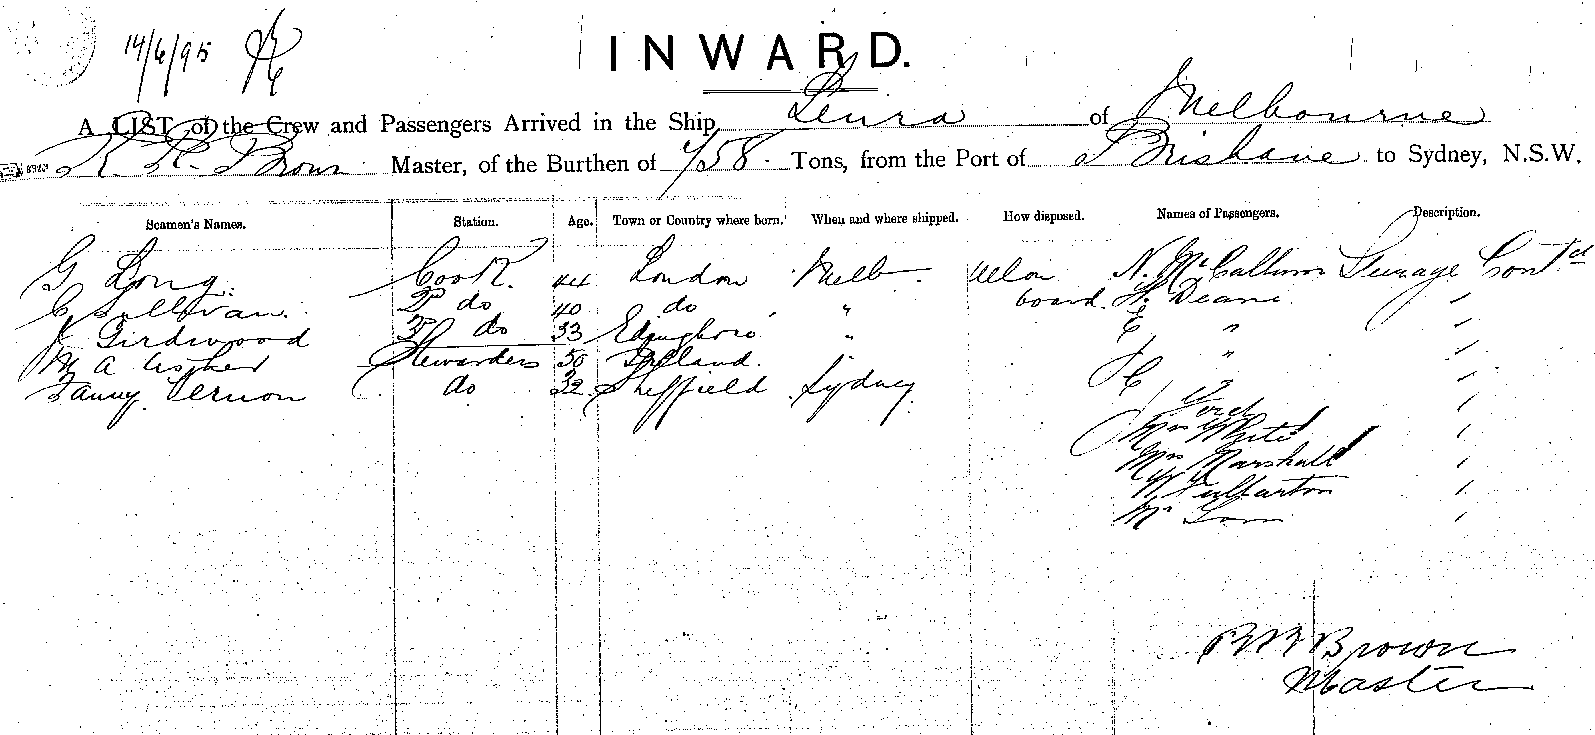 14/6/95
INWARD.
A LIST of the Crew and Passengers Arrived in the Ship Leura of Melbourne
Brown Master, of the Burthen of 758 Tons, from the Port of Brisbane to Sydney, N.S.W.
Seamen's Names. Station. Age. Town or Country where born. When and where shipped. How disposed. Names of Passengers. Description.
G Long. Cook. 44 London Melb Still on N. McCallum Steerage Contd
C Sullivan. 2nd do 40 do " board. H. Deane "
J Girdwood 3rd do 33 Edinghboro " E " "
M A Usher Stewardess 50 Ireland. " H " "
Fanny Vernon do 32 Sheffield Sydney. "
Mrs White "
Mrs Marshall "
W Fullarton "
Mr "
Brown
Master